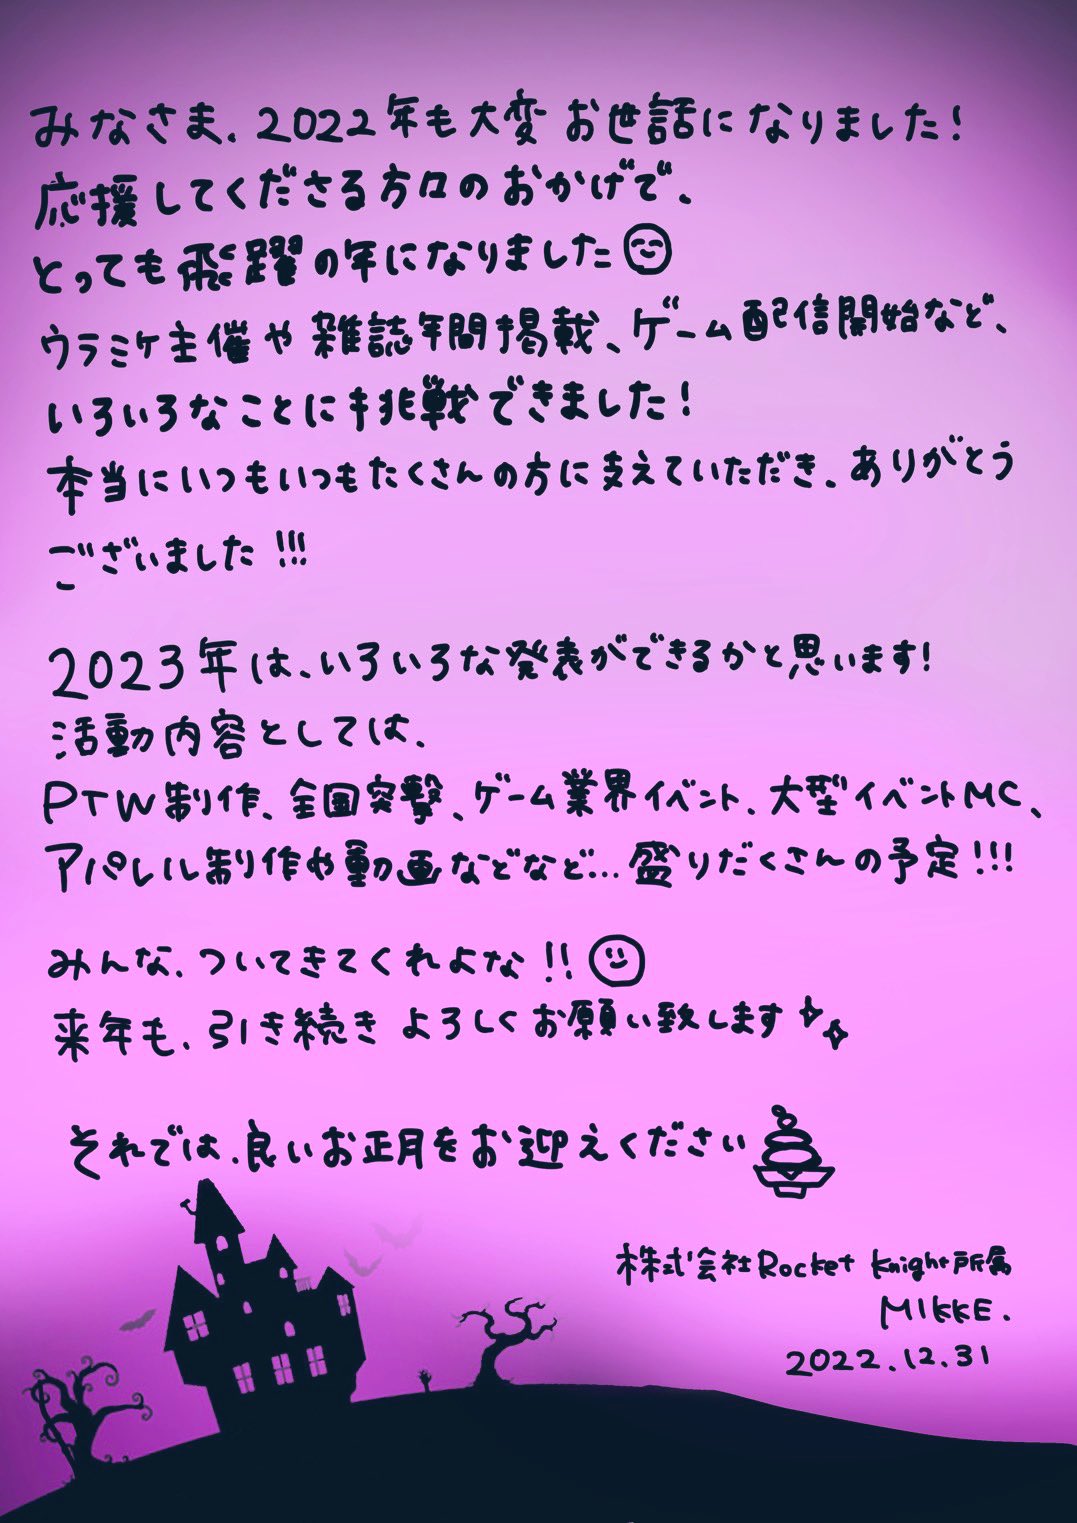 みなさま、2022年も大変お世話になりました!
応援してくださる方々のおかげで、
とっても飛躍の年になりました
ウラミケ主催や雑誌年間掲載、ゲーム配信開始など、
いろいろなことに挑戦できました!
本当にいつもいつもたくさんの方に支えていただき、ありがとう
ございました!!!
2023年は、いろいろな発表ができるかと思います!
活動内容としては、
PTW制作、全国突撃、ゲーム業界イベント、大型イベントMC、
アパレル制作や動画などなど…盛りだくさんの予定!!!
みんな、ついてきてくれよな!!
来年も、引き続きよろしくお願い致します
それでは、良いお正月をお迎えください
株式会社Rocket Knight所属
MIKKE.
2022.12.31